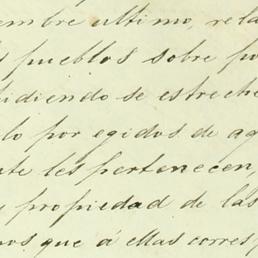 embre ultimo, rela
s pueblos sobre po
idiendo se estreche
lo por egidos de ag
nte les pertenecen,
y propiedad de las
nos que á ellas corresp